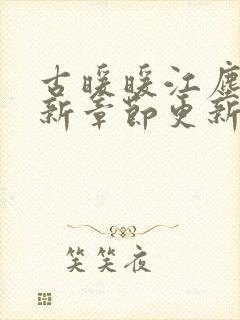 古暖暖江尘
新章节更新
笑笑夜